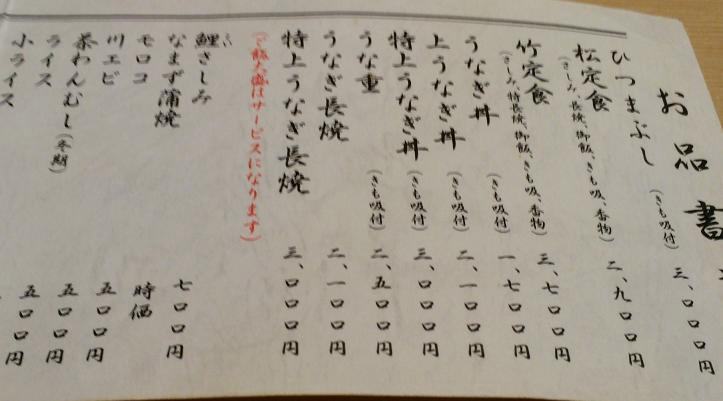 お品書
ひつまぶし(きも吸付)三、〇〇〇円
松定食(さしみ、長焼、御飯、きも吸、香物)二、九〇〇円
竹定食(さしみ、特長焼、御飯、きも吸、香物)三、七〇〇円
うなぎ丼(きも吸付)一、七〇〇円
上うなぎ丼(きも吸付)二、一〇〇円
特上うなぎ丼(きも吸付)三、〇〇〇円
うな重(きも吸付)二、五〇〇円
うなぎ長焼 二、一〇〇円
特上うなぎ長焼 三、〇〇〇円
(ご飯大盛はサービスになります)
鯉さしみ 七〇〇円
なまず蒲焼 時価
モロコ 五〇〇円
川エビ 五〇〇円
茶わんむし(冬期)五〇〇円
ライス
小ライス